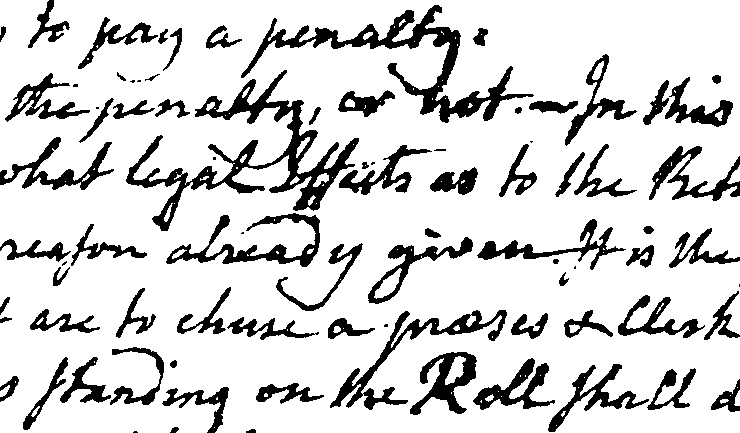 to pay a penalty:
the penalty, or not. — In this
what legal Effects as to the
reason already given. It is the
are to chuse a præses & Clerk
standing on the Roll shall